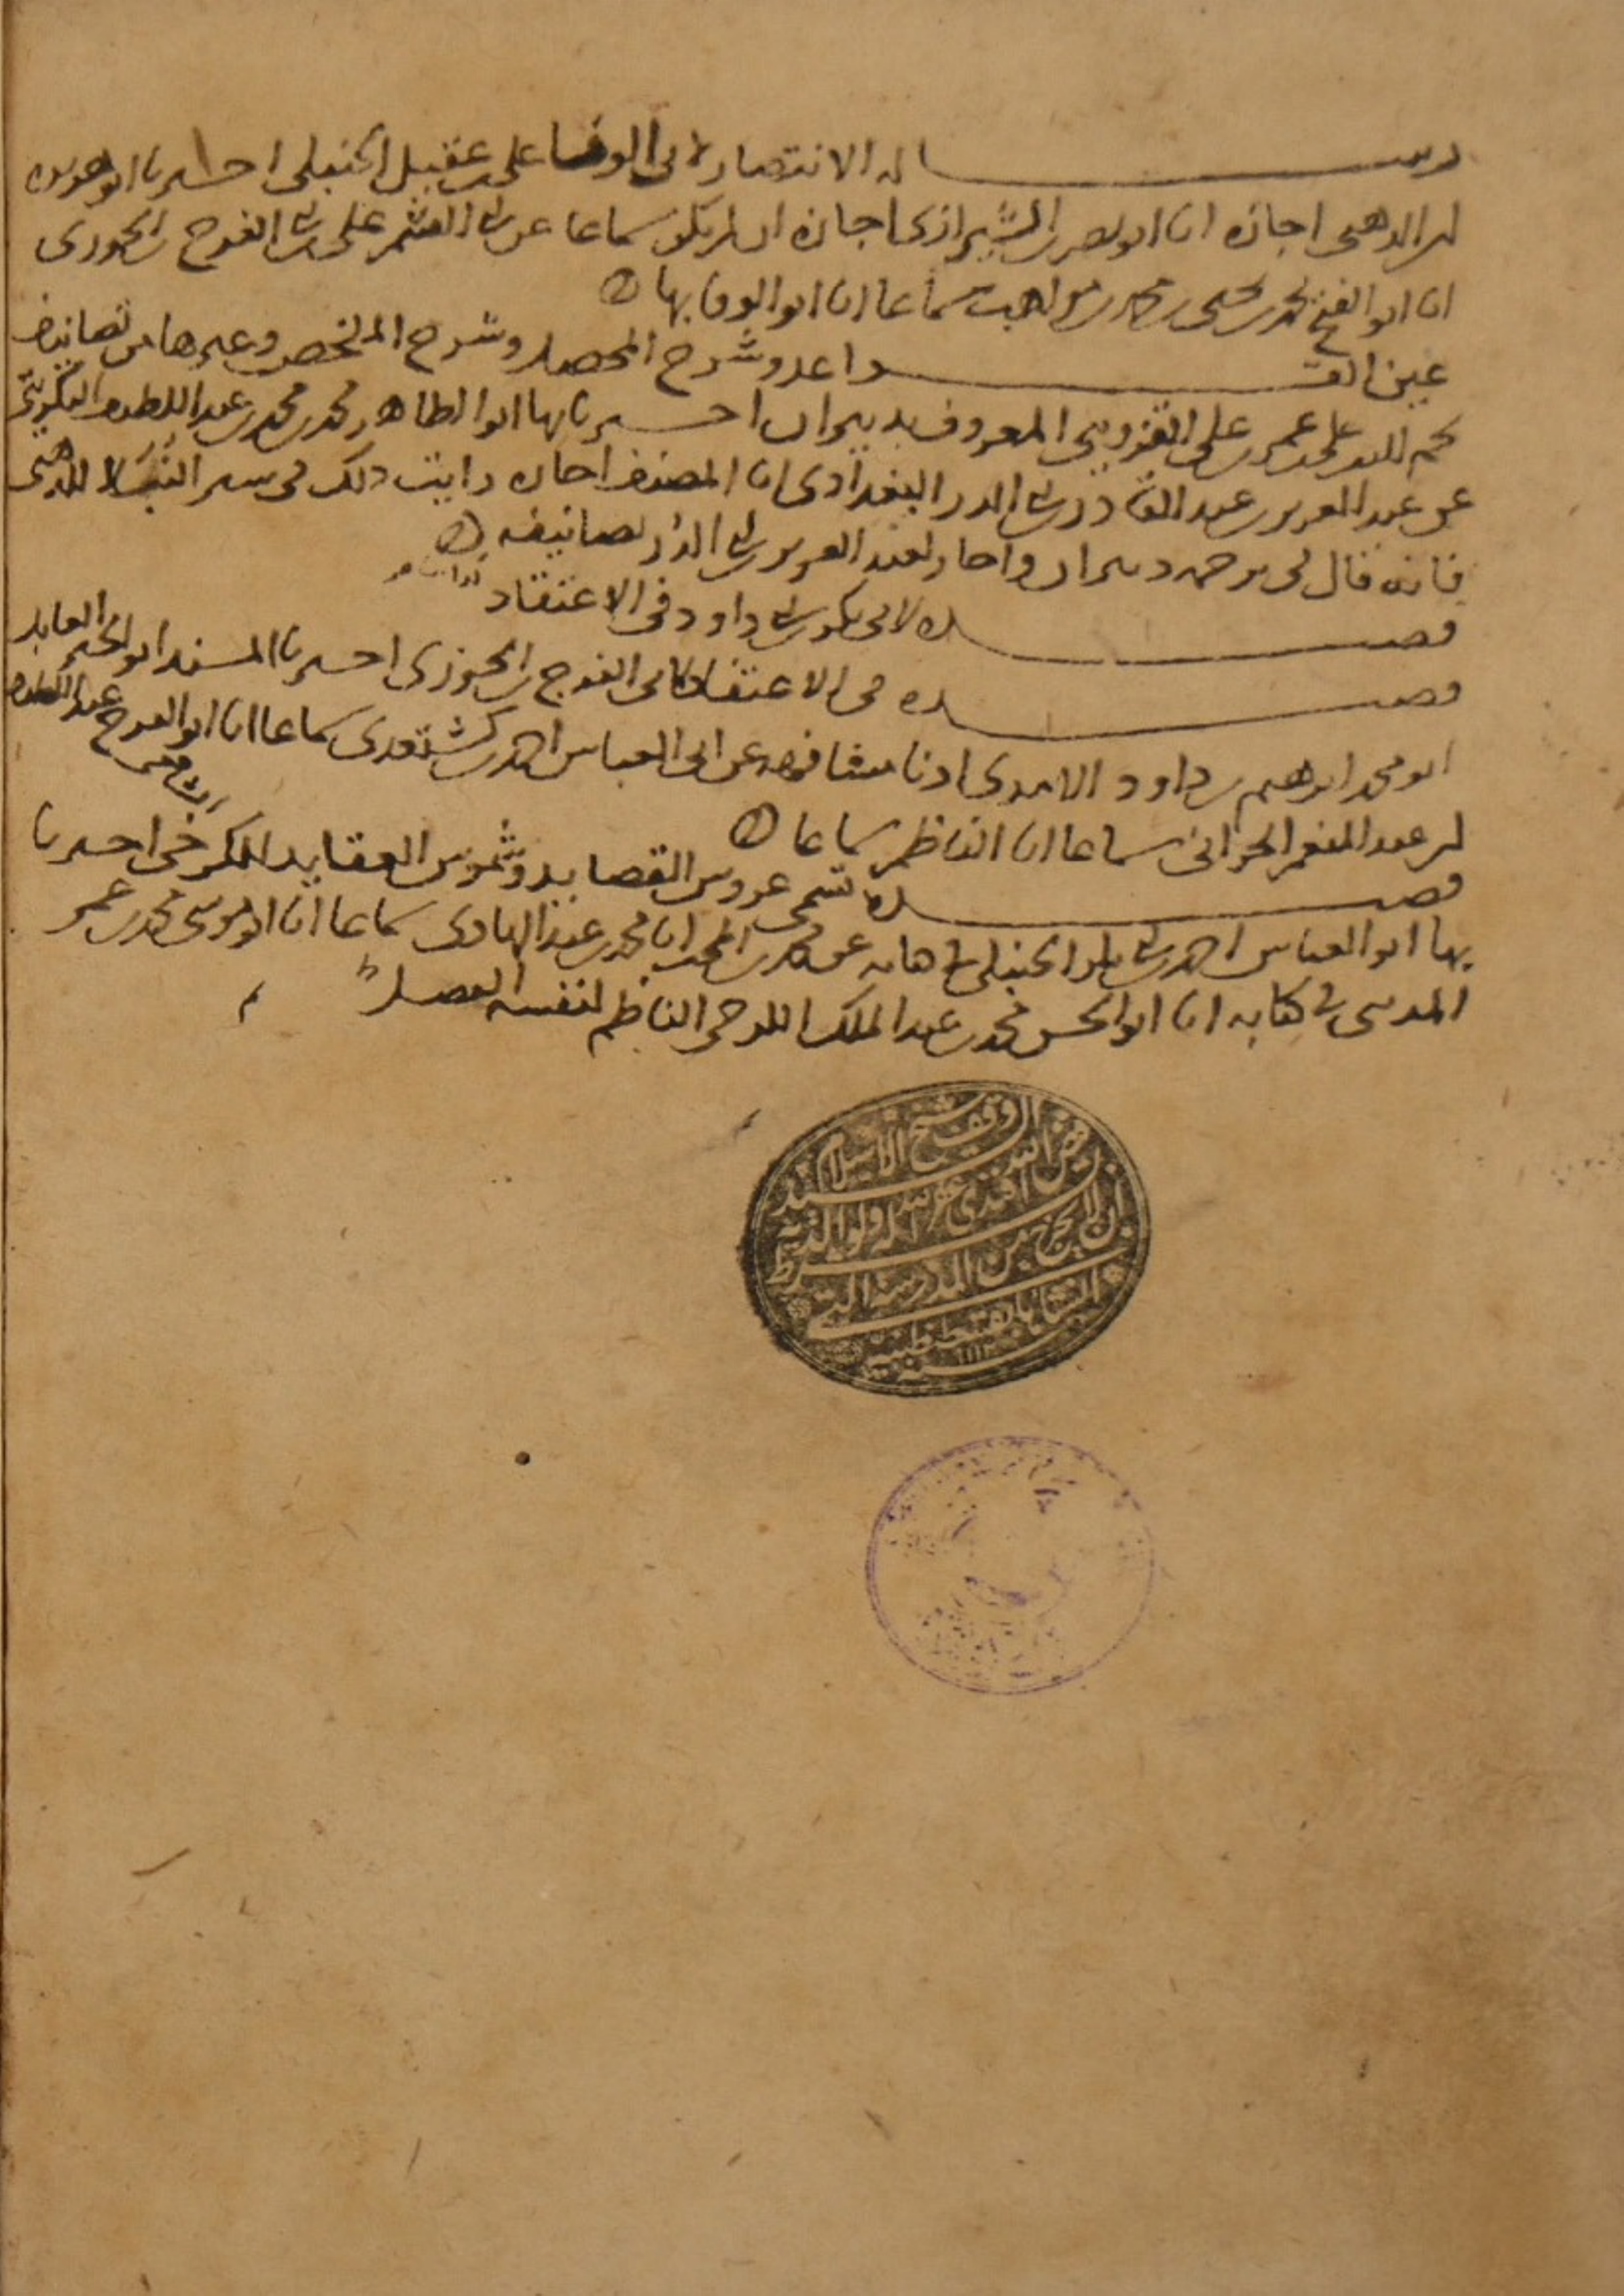 رسالة الانتصار لابي الوفا علي بن عقيل الحنبلي اخبرنا ابو هريرة
ابن الذهبي اجازة انا ابو نصر بن الشيرازي اجازة ان لم يكن سماعا عن ابي القسم علي بن ابي الفرج بن الجوزي
انا ابو الفتح محمد بن يحيى بن محمد بن مواهب سماعا انا ابو الوفا بها
عين القواعد وشرح المحصل وشرح الملخص وغيرها من تصانيف
نجم الدين علي بن عمر بن علي القزويني المعروف بدبيران اخبرنا بها ابو الطاهر محمد بن محمد بن عبد اللطيف التكريتي
عن عبد العزيز بن عبد القادر بن ابي الدر البغدادي انا المصنف اجازه رايت ذلك في سير النبلا للذهبي
فانه قال في ترجمة دبيران واجاز لعبد العزيز بن ابي الدر تصانيفه
قصيدة لابي بكر بن ابي داود في الاعتقاد
قصيدة في الاعتقاد لابي الفرج بن الجوزي اخبرنا المسند ابو الخير العابد
ابو محمد ابرهيم بن داود الامدي اذنا مشافهة عن ابي العباس احمد بن كشتغدي سماعا انا ابو الفرج عبد اللطيف
ابن عبد المنعم الحراني سماعا انا الناظم سماعا
قصيدة تسمى عروس القصايد وشموس العقايد للكرخي اخبرنا
بها ابو العباس احمد بن ابي بكر الحنبلي في كتابه عن محمد بن المحب انا محمد بن عبد الهادي سماعا انا ابو موسى محمد بن عمر
المديني في كتابه انا ابو الحسن محمد بن عبد الملك الكرخي الناظم لنفسه القصيدة
وقف شيخ الاسلام السيد
فيض الله افندي غفر الله له ولوالديه
بشرط ان لا يخرج من المدرسة التي
انشاها بقسطنطينية
سنة ١١١٣